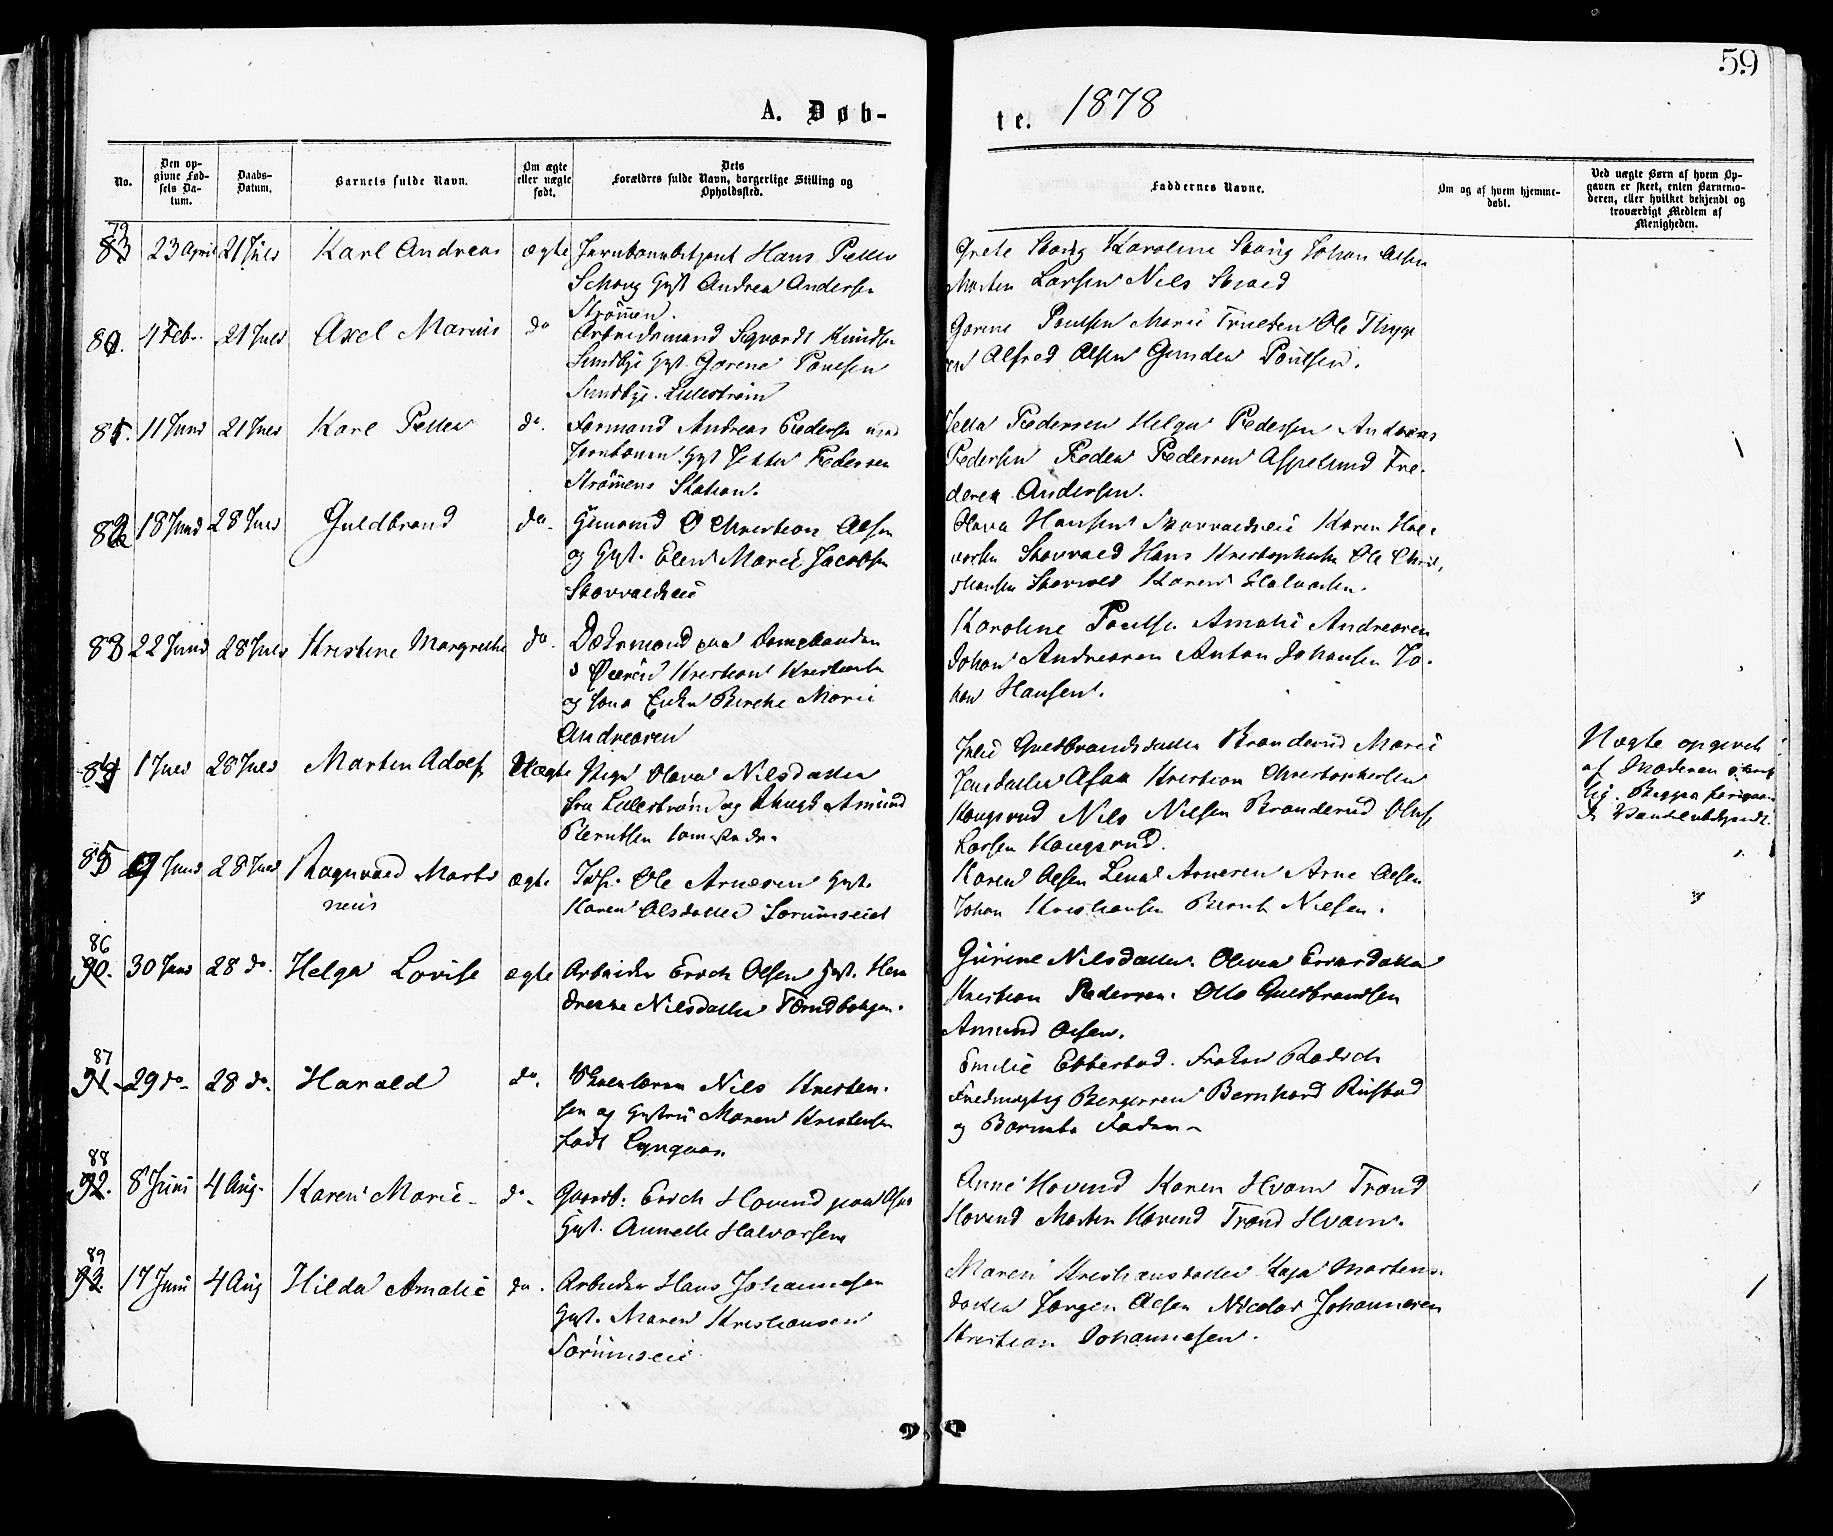 59
A. Døb-
te. 1878
No.
Den op-
givne Fød-
sels Da-
tum.
Daabs-
Datum.
Barnets fulde Navn.
Om ægte
eller uægte
født.
Dets
Forældres fulde Navn, borgerlige Stilling og
Opholdssted.
Faddernes Navne.
Om og af hvem hjemme-
døbt.
Ved uægte Børn af hvem Op-
gaven er skeet, enten Barnemo-
deren, eller hvilket bekjendt og
troværdigt Medlem af
Menigheden.
79
83 23 April 21 Juli Karl Andreas ægte Jernbanebetjent Hans Petter
Schoug Hust Andrea Andersen
Strømen.
Grete Karoline Johan Olsen
Morten Larsen Nils
80. 4 Feb. 21 Juli Axel Marius do Arbeidsmand Sigvardt Knudsen
Sundbye Hust. Gorene Poulsen
Sundbye. Lillestrøm
Gorene Poulsen Marie Truelsen Ole Thyge
sen Alfred Olsen Gunder Poulsen.
81. 11 Juni 21 Juli Karl Petter do. Formand Andreas Pedersen ved
Jernbanen Hust Jette Pedersen
Strømens Station.
Jette Pedersen Helga Pedersen Andreas
Pedersen Peder Pedersen Aspelund Fre-
derik Andersen.
82 18 Juni 28 Juli Guldbrand do. Gmand O Christian Olsen
og Hust. Elen Marie Jacobsen
Skovvaldseie
Olava Hansen Skovvaldseie Karen Hal-
vorsen Skovvald Hans Kristophersen Ole Chris-
tiansen Karen Halvorsen.
83 22 Juni 28 Juli Kristine Margrethe do. paa
Kristian Kristiansen
og Kona Birthe Marie
Andreasen
Karoline Poulsen Amalie Andreasen
Johan Andreasen Anton Johansen Jo-
han Hansen.
84 1 Juli 28 Juli Morten Adolf Uægte Pige Olava Nilsdatter
fra Lillestrøm og Ungk Amund
Berntsen samestede.
Julie Guldbrandsdatter Branderud Marie
Jensdatter Asak Kristian Christophersen
Haugsrud Nils Nielsen Branderud Oluf
Larsen Haugsrud.
Uægte opgivet
af Moderen
85 9 Juni 28 Juli Ragnvald Marti
neus ægte Indf. Ole Arnesen Hust.
Karen Olsdatter Sørumseiet
Karen Olsen Lena Arnesen Arne Olsen
Johan Kristiansen Bernt Nielsen.
86
90. 30 Juni 28 do. Helga Lovise ægte Arbeider Erich Olsen Hust. Hen
drikke Nilsdatter
Gurine Nilsdatter. Oliva
Kristian Pedersen. Otto Guldbrandsen
Amund Olsen.
87
91. 29 do 28 do. Harald do. Skolelærer Nils Kristen-
sen og Hustru Maren Kristensen
født Lyngaas.
Emilie Ebbestad. Frøken Radich
Fredrik Bergersen Bernhard Rustad
og Barnets Fader.
88
92. 8 Juni 4 Aug. Karen Marie do. Gaardb. Erich Hovind paa Asak
Hust. Annette Halvorsen
Anne Hovind Karen Hvam Trond
Hovind Morten Hovind Trond Hvam.
89
93. 17 Juni 4 Aug Hilda Amalie do. Arbeider Hans Johannesen
Hust. Maren Kristiansen
Sørumseie
Maren Kristiansdatter Kaja Martens-
datter Jørgen Olsen Nicolai Johannesen
Kristian Johannesen.